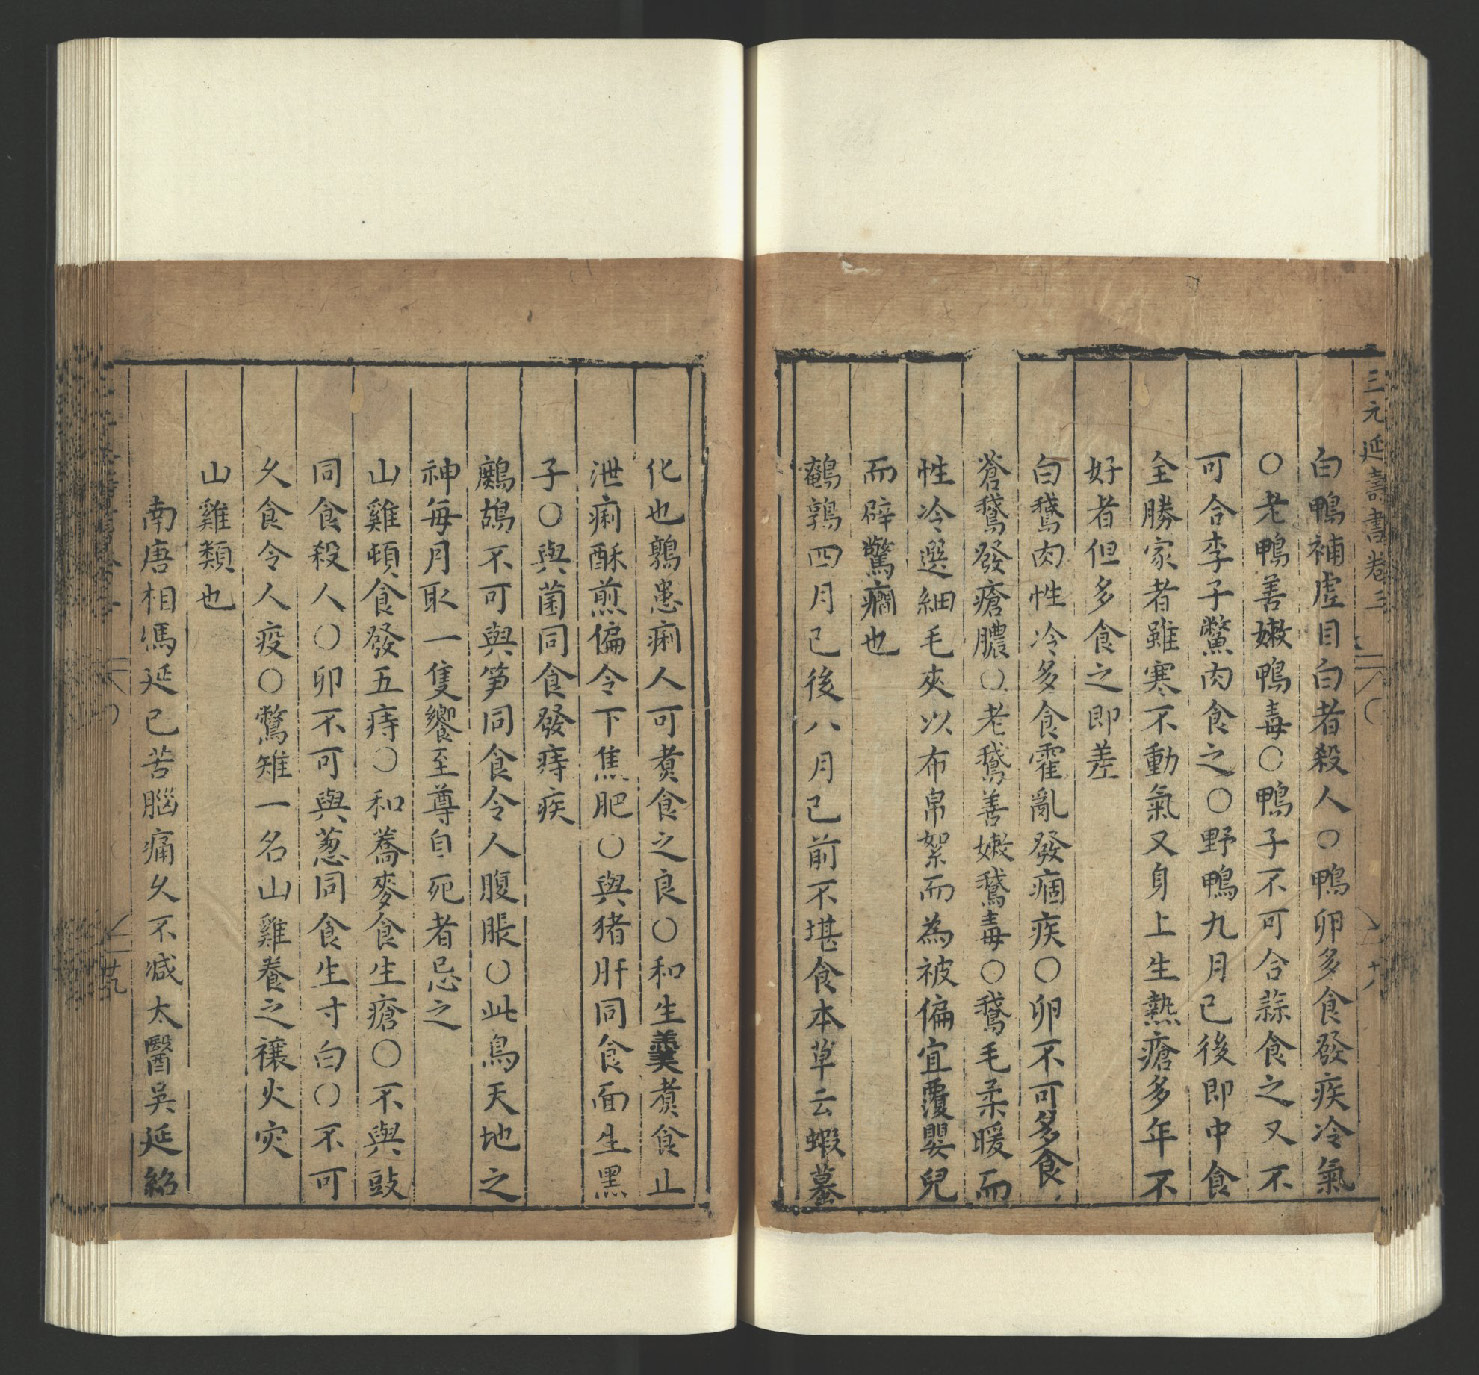 三元延壽書卷三
白鴨補虛目白者殺人○鴨卵多食發疾冷氣
○老鴨善嫩鴨毒○鴨子不可合蒜食之又不
可合李子鱉肉食之○野鴨九月已後即中食
全勝家者雖寒不動氣又身上生熱瘡多年不
好者但多食之即差
白鵞肉性冷多食霍亂發痼疾○卵不可多食
蒼鵞發瘡膿○老鵞善嫩鵞毒○鵞毛柔暖而
性冷選細毛夾以布帛絮而為被偏宜覆嬰兒
而辟驚癇也
鵪鶉四月已後八月已前不堪食本草云蝦蟇
化也鶉患痢人可煑食之良○和生薑煑食止
泄痢酥煎偏令下焦肥○與猪肝同食面生黑
子○與菌同食發痔疾
鷓鴣不可與笋同食令人腹脹○此鳥天地之
神每月取一隻饗至尊自死者忌之
山雞頓食發五痔○和蕎麥食生瘡○不與豉
同食殺人○卯不可與葱同食生寸白○不可
久食令人疫○鷩雉一名山雞養之禳火灾
山雞類也
南唐相馮延已苦腦痛久不减太醫吳延紹